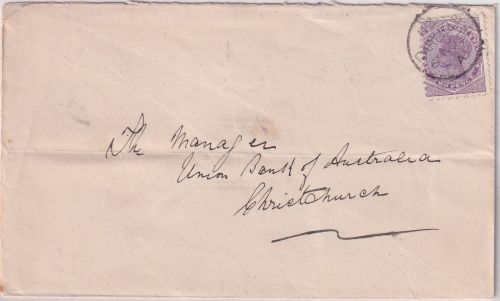 The Manager
Union Bank of Australia
Christchurch